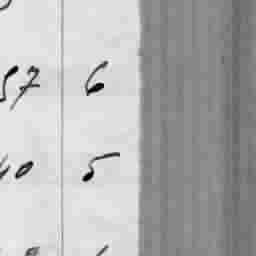 57 6
40 5